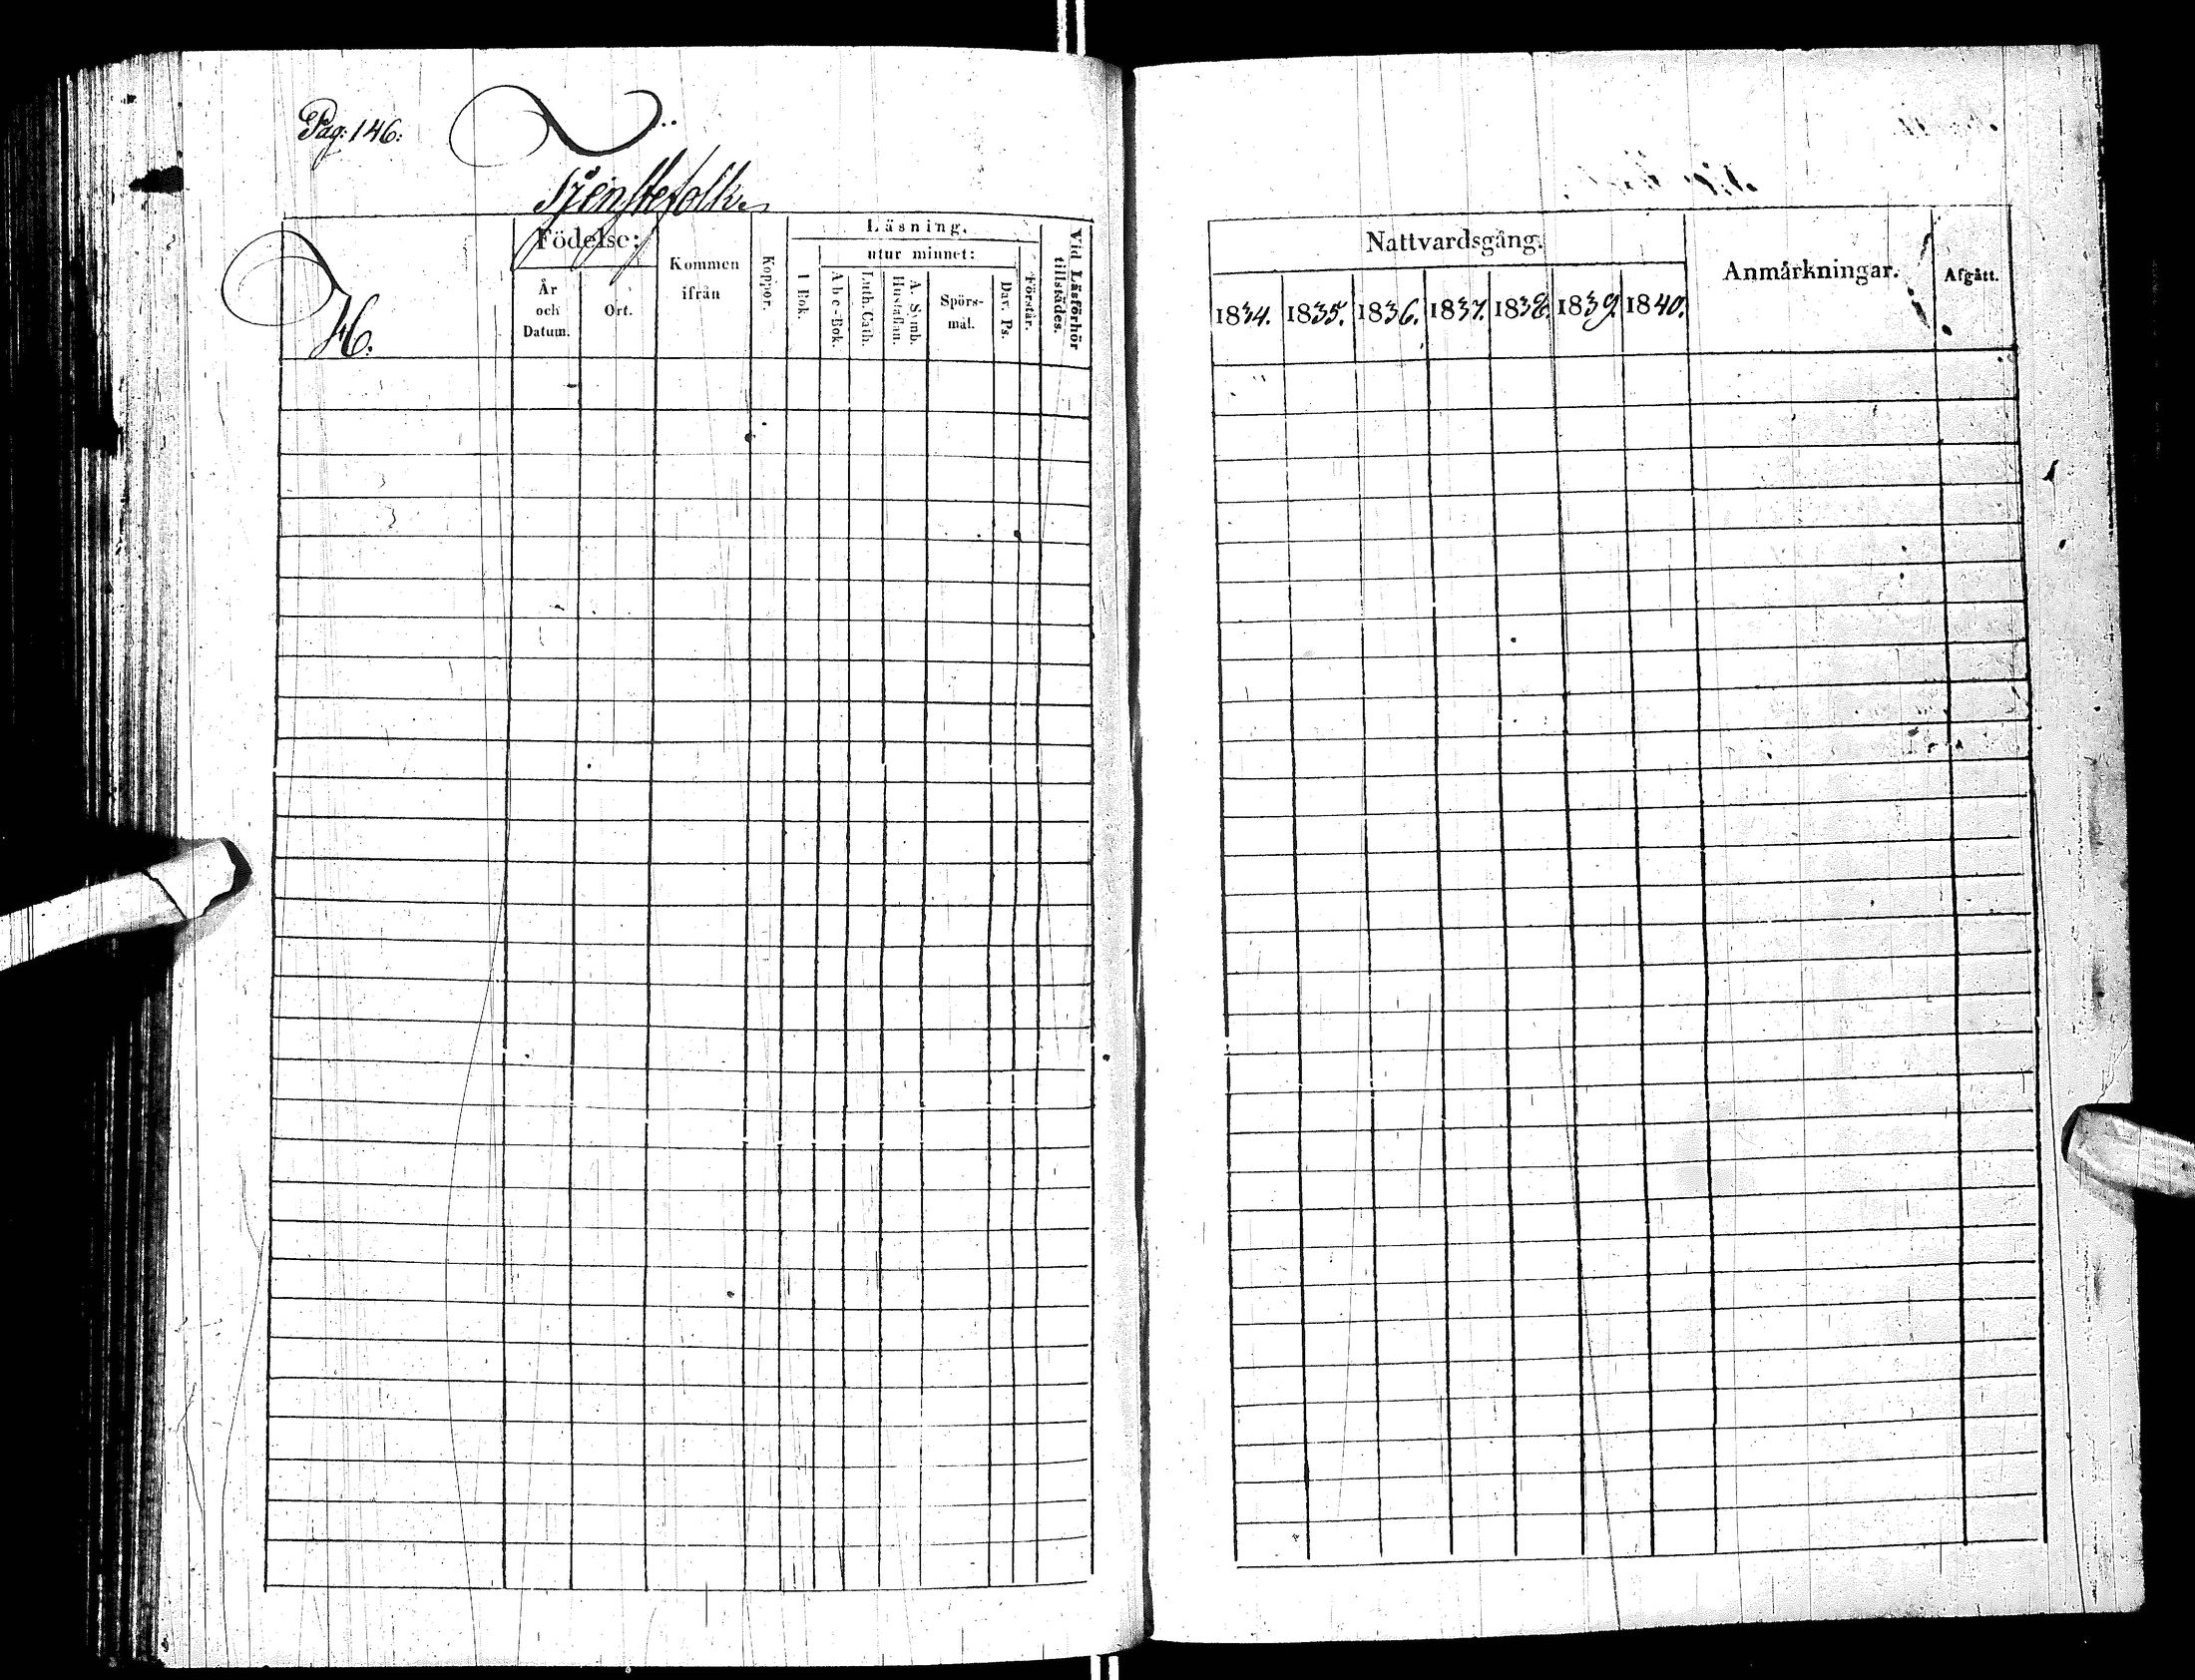 Pag: 146:
Tjenstefolk.
H.
Födelse:
År och Datum.
Ort.
Kommen ifrån
Koppor.
Läsning.
utur minnet:
I Bok.
Abc-Bok.
Luth. Cath.
A. Symb. Hustaflan.
Spörs-mål.
Dav. Ps.
Förstår.
Vid Läsförhör tillstädes.
Nattvardsgång.
1834. 1835. 1836. 1837. 1838. 1839. 1840.
Anmärkningar.
Afgått.